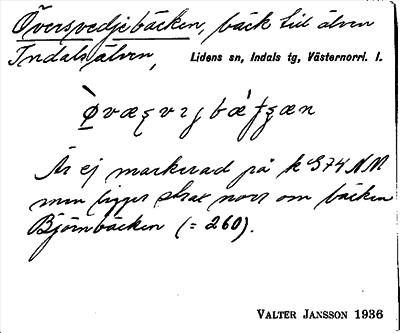 Översvedjebäcken, bäck till älven
Indalsälven, Lidens sn, Indals tg, Västernorrl. l.
Är ej markerad på k 374 NM
men ligger strax norr om bäcken
Björnbäcken (= 260).
VALTER JANSSON 1936